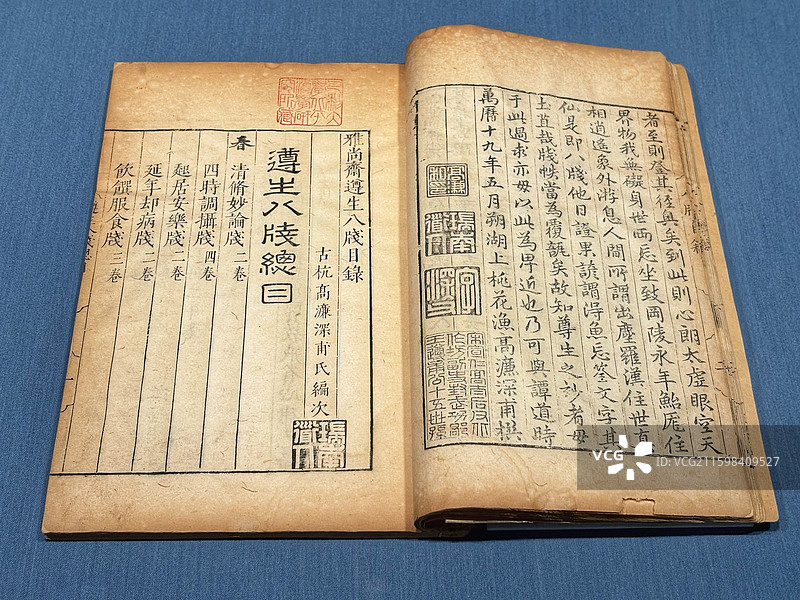 者至則登其徑奧矣到此則心朗太虛眼空天
界物我無礙身世両忘坐致岡陵永年鮐厖住
相逍遙象外游息人間所謂出塵羅漢住世真
仙是即八牋他日證果諺謂得魚忘筌文字其
土苴哉牋帙當為覆瓿矣故知尊生之妙者毋
于此過求亦毋以此為卑近也乃可與譚道時
萬曆十九年五月朔湖上桃花漁高濂深甫撰
瑞南道人
雅尚齋遵生八牋目錄
古杭高濂深甫氏編次
瑞南道人
遵生八牋總目
春
清修妙論牋 二卷
四時調攝牋 四卷
起居安樂牋 二卷
延年却病牋 二卷
飲饌服食牋 三卷
VCG
ID:VCG211598409527